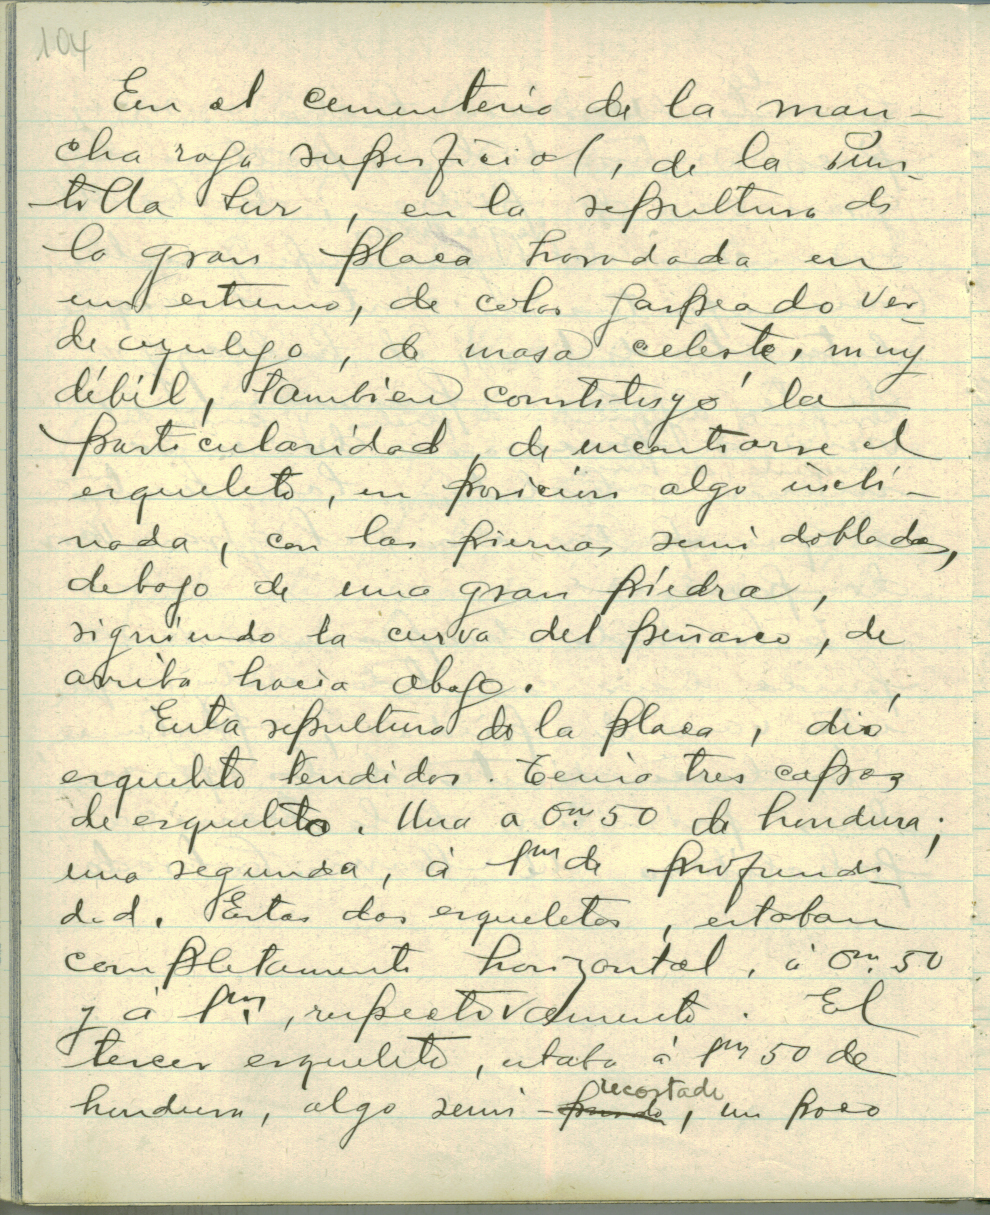 104
En el cementerio de la man-
cha roja superficial, de la Pun-
tilla Sur, en la sepultura de
la gran placa horodada en
un estremo, de color jaspeado ver-
de azulejo, de masa celeste, muy
débil, tambien constituyó la
particularidad, de encontrarse el
esqueleto, en posicion algo incli-
nada, con las piernas semi dobladas,
debajo de una gran piedra,
siguiendo la curva del peñasco, de
arriba hacia abajo.
Esta sepultura de la placa, dió
esqueleto tendidos. Tenia tres capas
de esqueletos. Una a 0m.50 de hondura;
una segunda, á 1m de profundi
dad. Estos dos esqueletos, estaban
completamente horizontal, á 0m.50
y á 1m., respectivamente. El
tercer esqueleto, estaba á 1m 50 de
hondura, algo semi- recostado, un poco